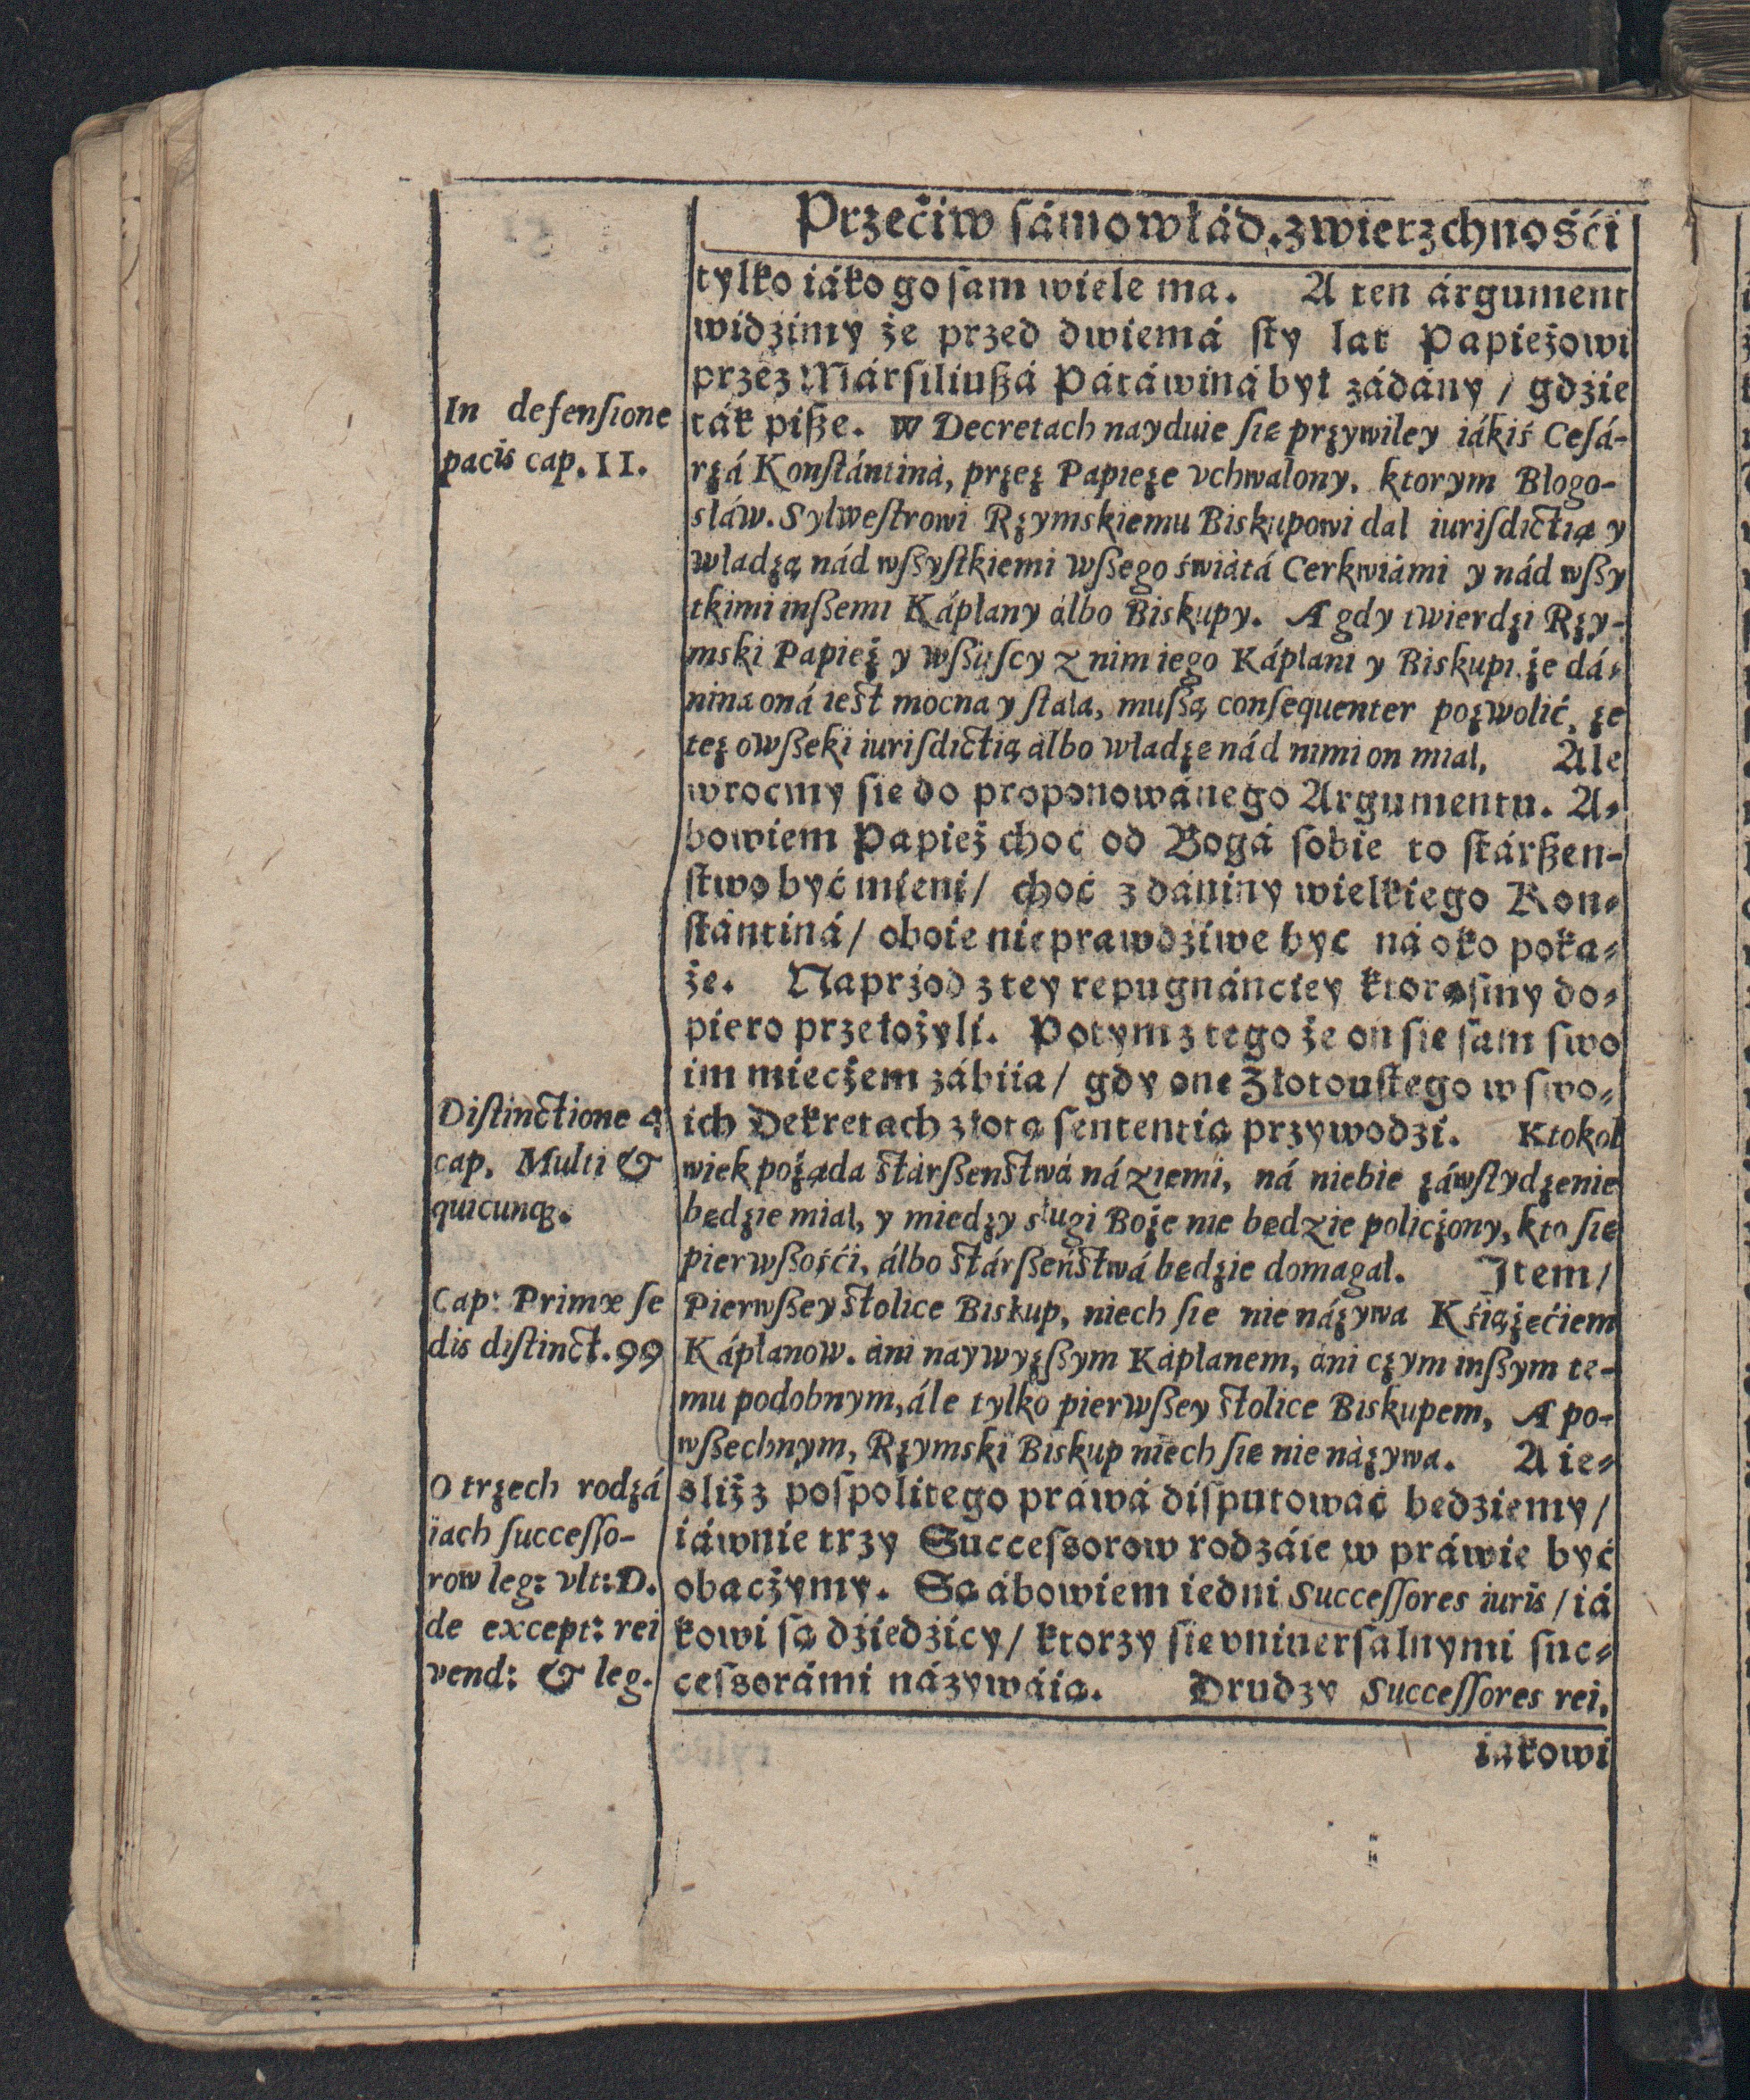 Przećiw ſámowład. zwierzchnośći
tylko iáko go ſam wiele ma. A ten árgument
widzimy że przed dwiemá ſty lat Papieżowi
przez Márſiliuſzá Pátáwiná był zádány / gdzie
ták piſze. W Decretach nayduie ſie przywiley iákiś Ceſá-
rzá Konſtántiná, przez Papieże vchwalony, ktorym Błogo-
słáw. Sylweſtrowi Rzymskiemu Biskupowi dal iuriſdictią y
władzą nád wſzyſtkiemi wſzego świátá Cerkwiámi y nád wſzy
tkimi inſzemi Kápłany álbo Biskupy. A gdy twierdzi Rzy-
mski Papież y wſzyſcy z nim iego Kápłani y Biskupi, że dá-
nina oná ieſt mocna y ſtała, muſzą conſequenter pozwolić, że
też owſzeki iuriſdictią álbo władze nád nimi on miał, Ale
wrocmy ſie do proponowánego Argumentu. A-
bowiem Papież choć od Bogá ſobie to ſtárſzen-
ſtwo być mieni / choć z dániny wielkiego Kon-
ſtántiná / oboie nieprawdźiwe być ná oko poka-
że. Naprzod z tey repugnánciey ktorąſmy do-
piero przełożyli. Potym z tego że on ſie ſam ſwo
im mieczem zábiia / gdy one Złotouſtego w ſwo-
ich Dekretach złotą ſententią przywodzi. Ktokol
wiek pożąda ſtárſzenſtwá ná ziemi, ná niebie záwſtydzenie
będzie miał, y miedzy sługi Boże nie będzie policzony, kto ſie
pierwſzośći, álbo ſtárſzeńſtwá będzie domagał. Item /
Pierwſzey ſtolice Biskup, niech ſie nie názywa Kśiążęćiem
Kápłanow. áni naywyżſzym Kápłanem, áni czym inſzym te-
mu podobnym, ále tylko pierwſzey ſtolice Biskupem, A po-
wſzechnym, Rzymski Biskup niech ſie nie názywa. A ie-
sliż z poſpolitego práwá diſputowáć bedziemy /
iáwnie trzy Succeſsorow rodzáie w práwie być
obaczymy. Są ábowiem iedni Succeſſores iuris / iá
kowi ſą dźiedźicy / ktorzy ſie vniuerſalnymi ſuc-
ceſsorámi názywáią. Drudzy Succeſſores rei,
iakowi
In defenſione
pacis cap. 11.
Diſtinctione 4
cap. Multi &
quicunq.
Cap: Primæ ſe
dis diſtinct. 99
O trzech rodzá
iach ſucceſſo-
row leg: vlt: D.
de except: rei
vend: & leg.